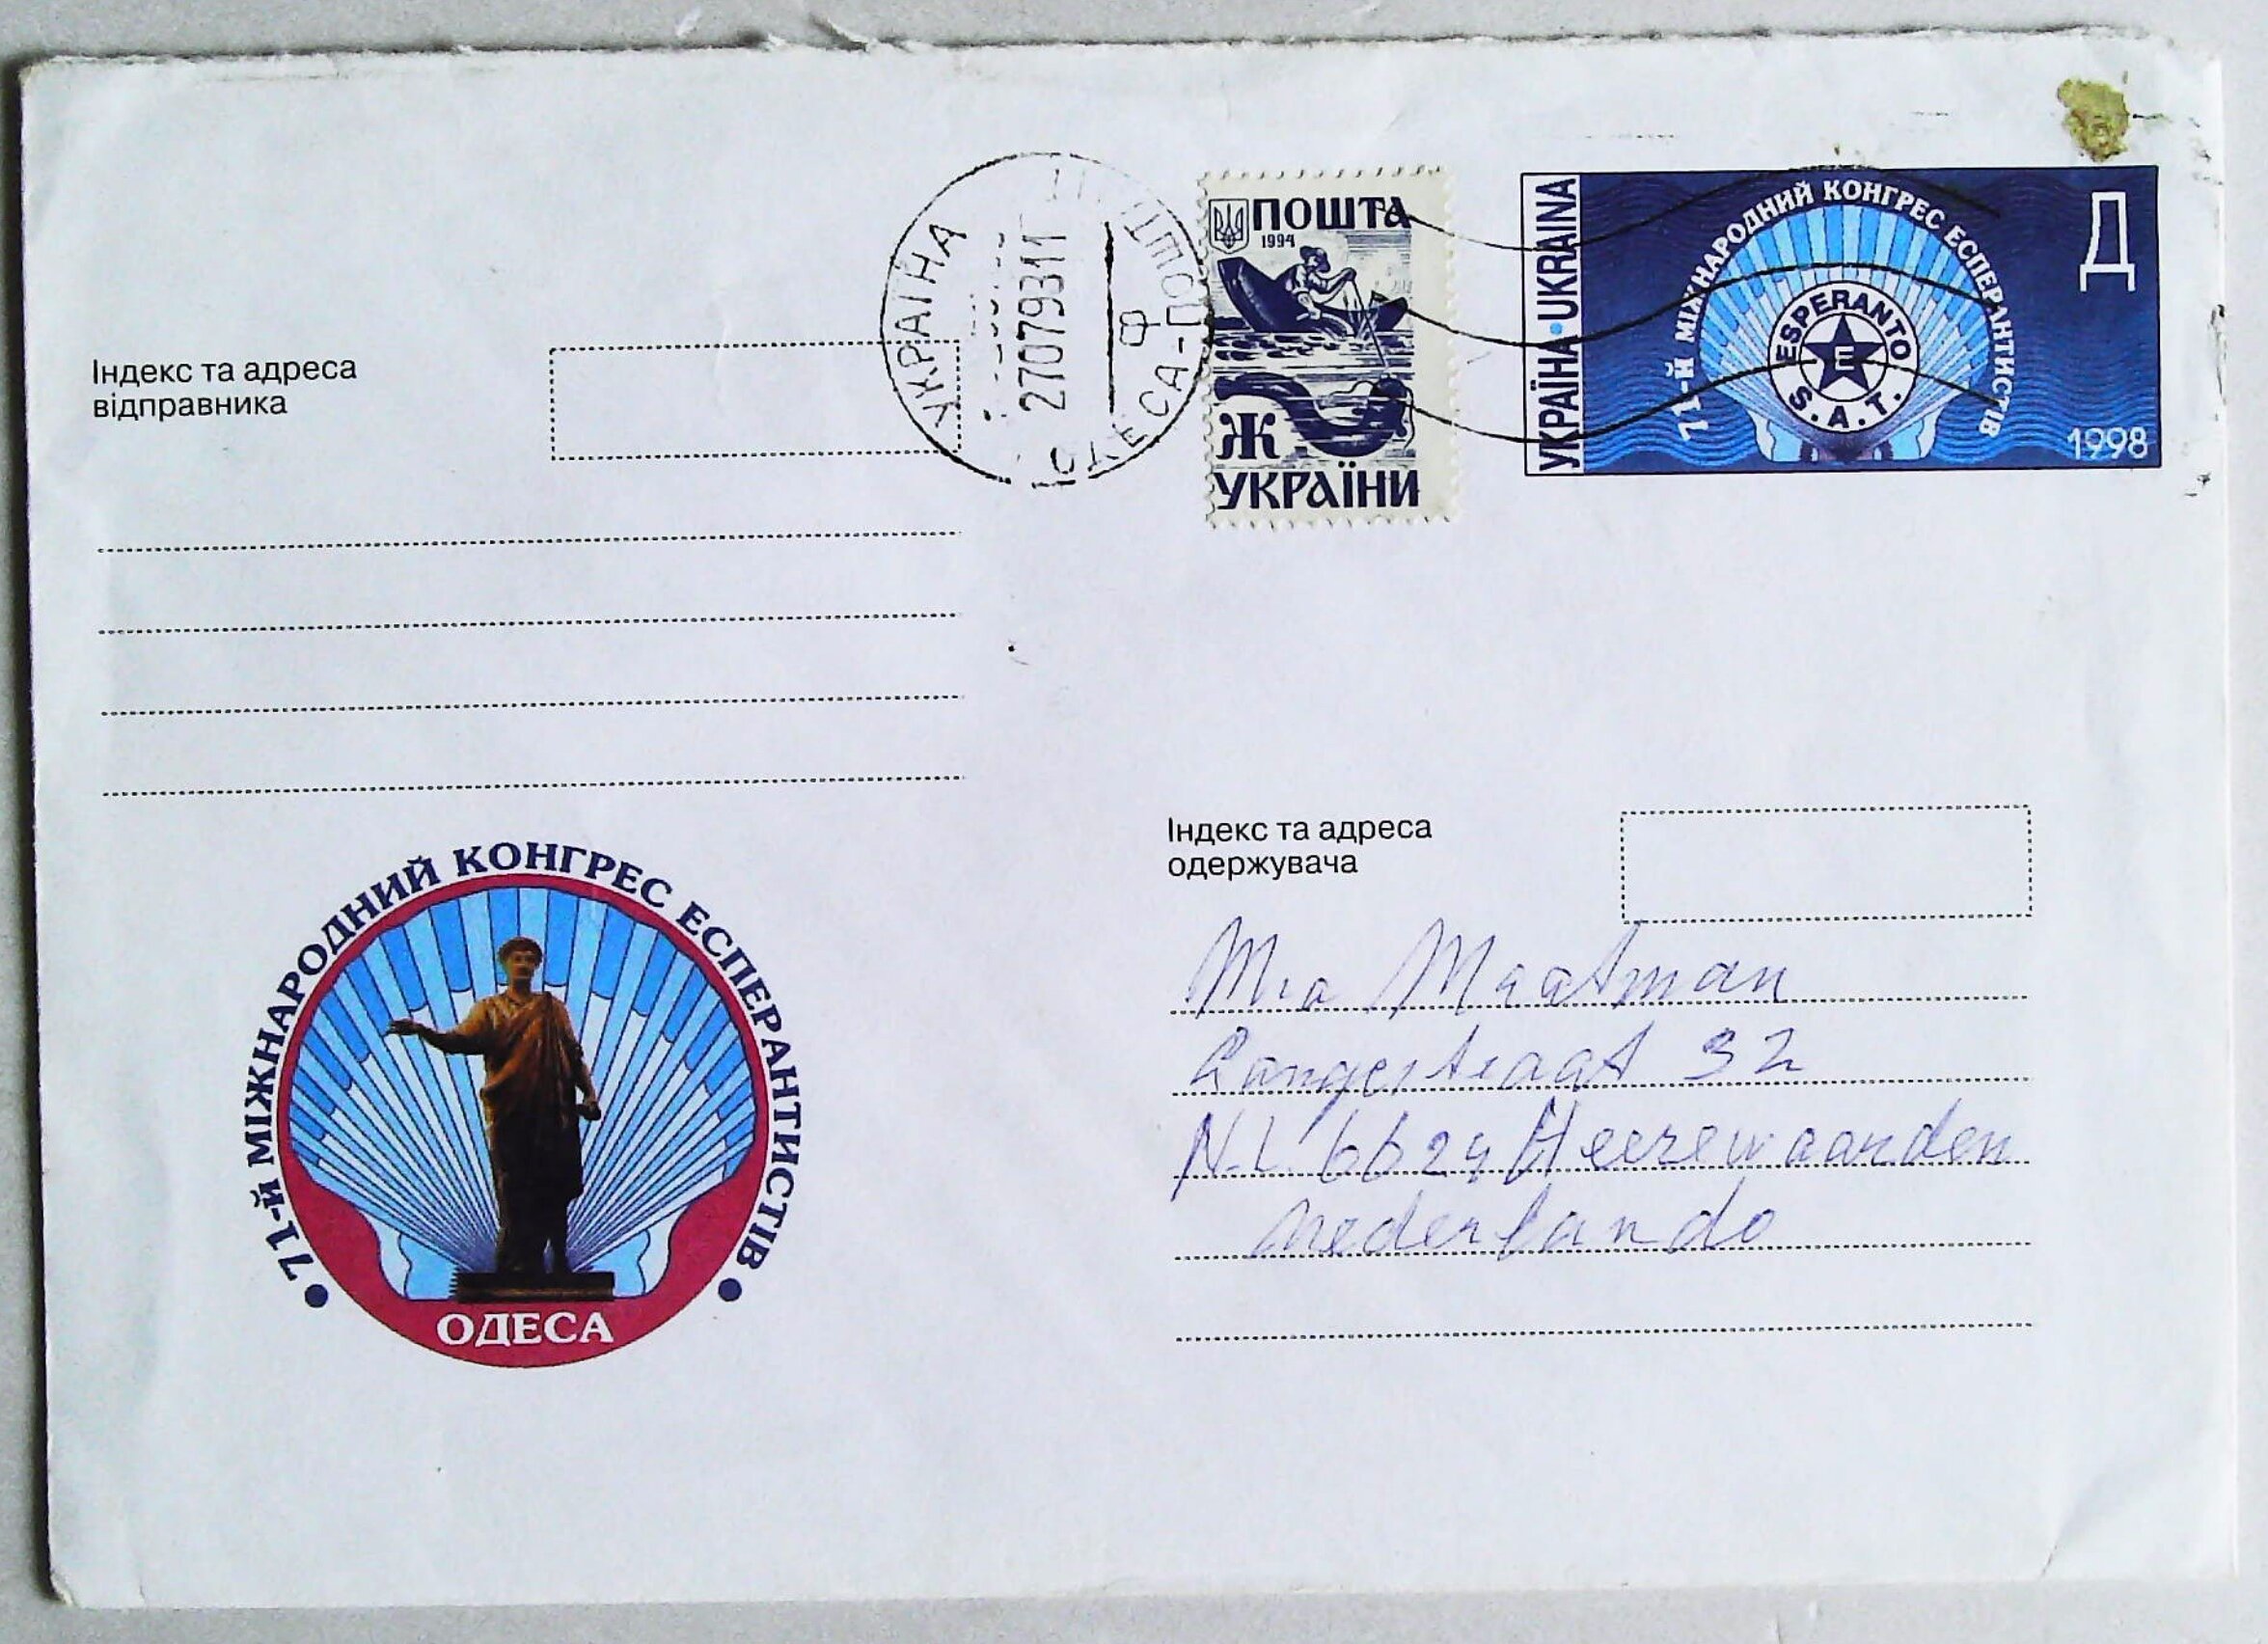 Індекс та адреса
відправника
УКРАЇНА
27079311
ОДЕСА-
ПОШТА
1994
Ж
УКРАЇНИ
УКРАЇНА·UKRAINA
71-Й МІЖНАРОДНИЙ КОНГРЕС ЕСПЕРАНТИСТІВ
ESPERANTO
E
S.A.T.
Д
1998
71-Й МІЖНАРОДНИЙ КОНГРЕС ЕСПЕРАНТИСТІВ
ОДЕСА
Індекс та адреса
одержувача
Mia Maatman
Langestraat 32
NL 6624 Heerewaarden
Nederlando